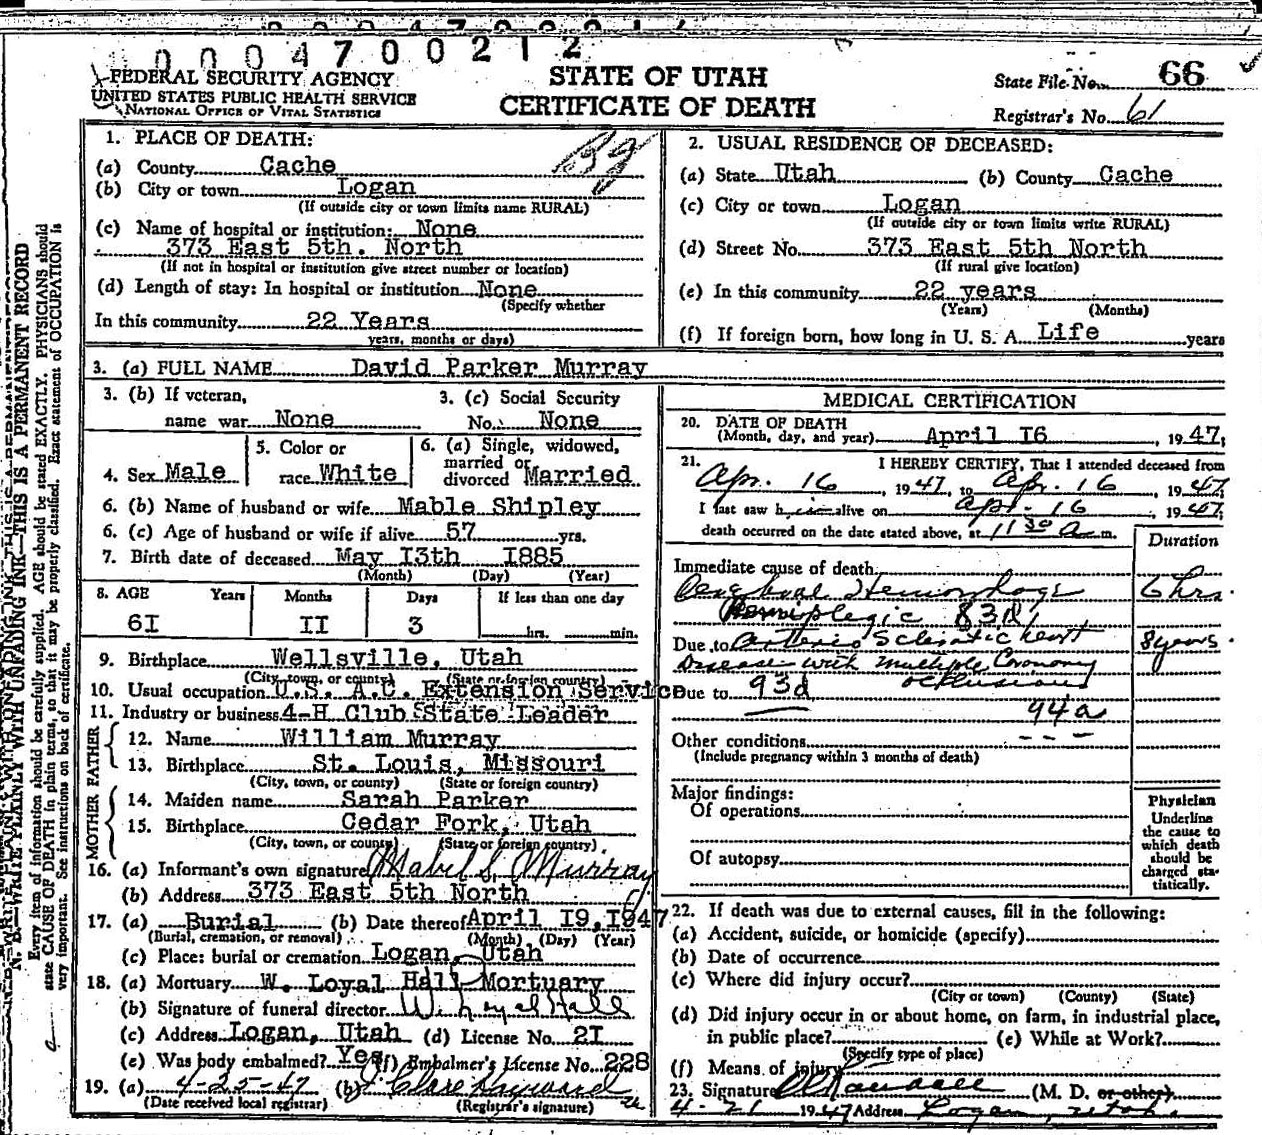 0004700212
FEDERAL SECURITY AGENCY
UNITED STATES PUBLIC HEALTH SERVICE
NATIONAL OFFICE OF VITAL STATISTICS
STATE OF UTAH
CERTIFICATE OF DEATH
State File No. 66
Registrar's No. 61
1. PLACE OF DEATH:
(a) County Cache
(b) City or town Logan
(If outside city or town limits name RURAL)
(c) Name of hospital or institution: None
373 East 5th. North
(If not in hospital or institution give street number or location)
(d) Length of stay: In hospital or institution None
(Specify whether
In this community 22 Years
years, months or days)
2. USUAL RESIDENCE OF DECEASED:
(a) State Utah (b) County Cache
(c) City or town Logan
(If outside city or town limits write RURAL)
(d) Street No. 373 East 5th North
(If rural give location)
(e) In this community 22 years
(Years) (Months)
(f) If foreign born, how long in U. S. A. Life years
3. (a) FULL NAME David Parker Murray
3. (b) If veteran,
name war None
3. (c) Social Security
No. None
4. Sex Male
5. Color or
race White
6. (a) Single, widowed,
married or
divorced Married
6. (b) Name of husband or wife Mable Shipley
6. (c) Age of husband or wife if alive 57 yrs.
7. Birth date of deceased May I3th I885
(Month) (Day) (Year)
8. AGE Years Months Days If less than one day
6I II 3 hrs. min.
9. Birthplace Wellsville, Utah
(City, town, or county) (State or foreign country)
10. Usual occupation U.S. A.C. Extension Service
11. Industry or business 4-H Club State Leader
FATHER
12. Name William Murray
13. Birthplace St. Louis, Missouri
(City, town, or county) (State or foreign country)
MOTHER
14. Maiden name Sarah Parker
15. Birthplace Cedar Fork, Utah
(City, town, or county) (State or foreign country)
16. (a) Informant's own signature Mabel S. Murray
(b) Address 373 East 5th North
17. (a) Burial (b) Date thereof April I9, I947
(Burial, cremation, or removal) (Month) (Day) (Year)
(c) Place: burial or cremation Logan, Utah
18. (a) Mortuary W. Loyal Hall Mortuary
(b) Signature of funeral director W. Loyal Hall
(c) Address Logan, Utah (d) License No. 2I
(e) Was body embalmed? Yes (f) Embalmer's License No. 228
19. (a) 4-25-47 (b) Clare Hayward
(Date received local registrar) (Registrar's signature)
MEDICAL CERTIFICATION
20. DATE OF DEATH
(Month, day, and year) April I6, 1947;
21. I HEREBY CERTIFY, That I attended deceased from
Apr. 16, 1947, to Apr. 16, 1947,
I last saw him alive on Apr. 16, 1947;
death occurred on the date stated above, at 11 30 a m.
Duration
Immediate cause of death
Cerebral Hemorrhage 6 hrs.
Hemiplegic 83d
Due to Arterio Sclerotic heart 8 years
disease with multiple Coronary
occlusions
Due to 93d
94a
Other conditions
(Include pregnancy within 3 months of death)
Major findings:
Of operations
Of autopsy
Physician
Underline
the cause to
which death
should be
charged sta-
tistically.
22. If death was due to external causes, fill in the following:
(a) Accident, suicide, or homicide (specify)
(b) Date of occurrence
(c) Where did injury occur?
(City or town) (County) (State)
(d) Did injury occur in or about home, on farm, in industrial place,
in public place? (e) While at Work?
(Specify type of place)
(f) Means of injury
23. Signature Randall (M. D. or other)
4-21 1947 Address Logan, Utah.
N. B.—WRITE PLAINLY WITH UNFADING INK—THIS IS A PERMANENT RECORD
Every item of information should be carefully supplied. AGE should be stated EXACTLY. PHYSICIANS should
state CAUSE OF DEATH in plain terms, so that it may be properly classified. Exact statement of OCCUPATION is
very important. See instructions on back of certificate.